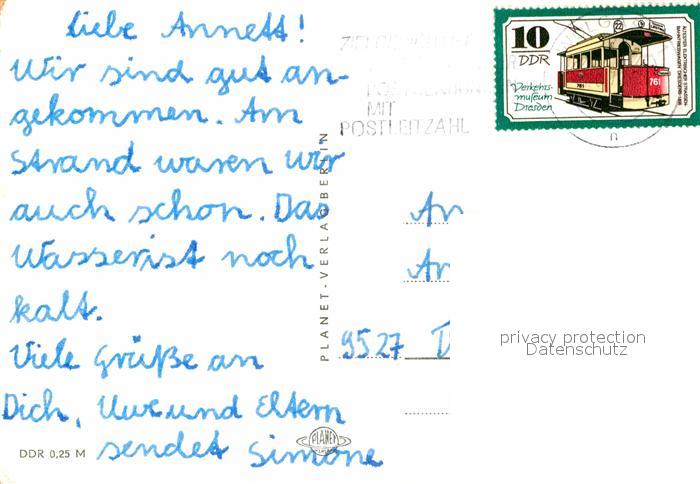 Liebe Annett!
Wir sind gut an-
gekommen. Am
Strand waren wir
auch schon. Das
Wasser ist noch
kalt.
Viele Grüße an
Dich, Uwe und Eltern
sendet Simone
DDR 0,25 M
PLANET-VERLAG BERLIN
PLANET
MIT
POSTLEITZAHL
10
DDR
Verkehrs-
museum
Dresden
22
761
761
An
An
9527 D
privacy protection
Datenschutz